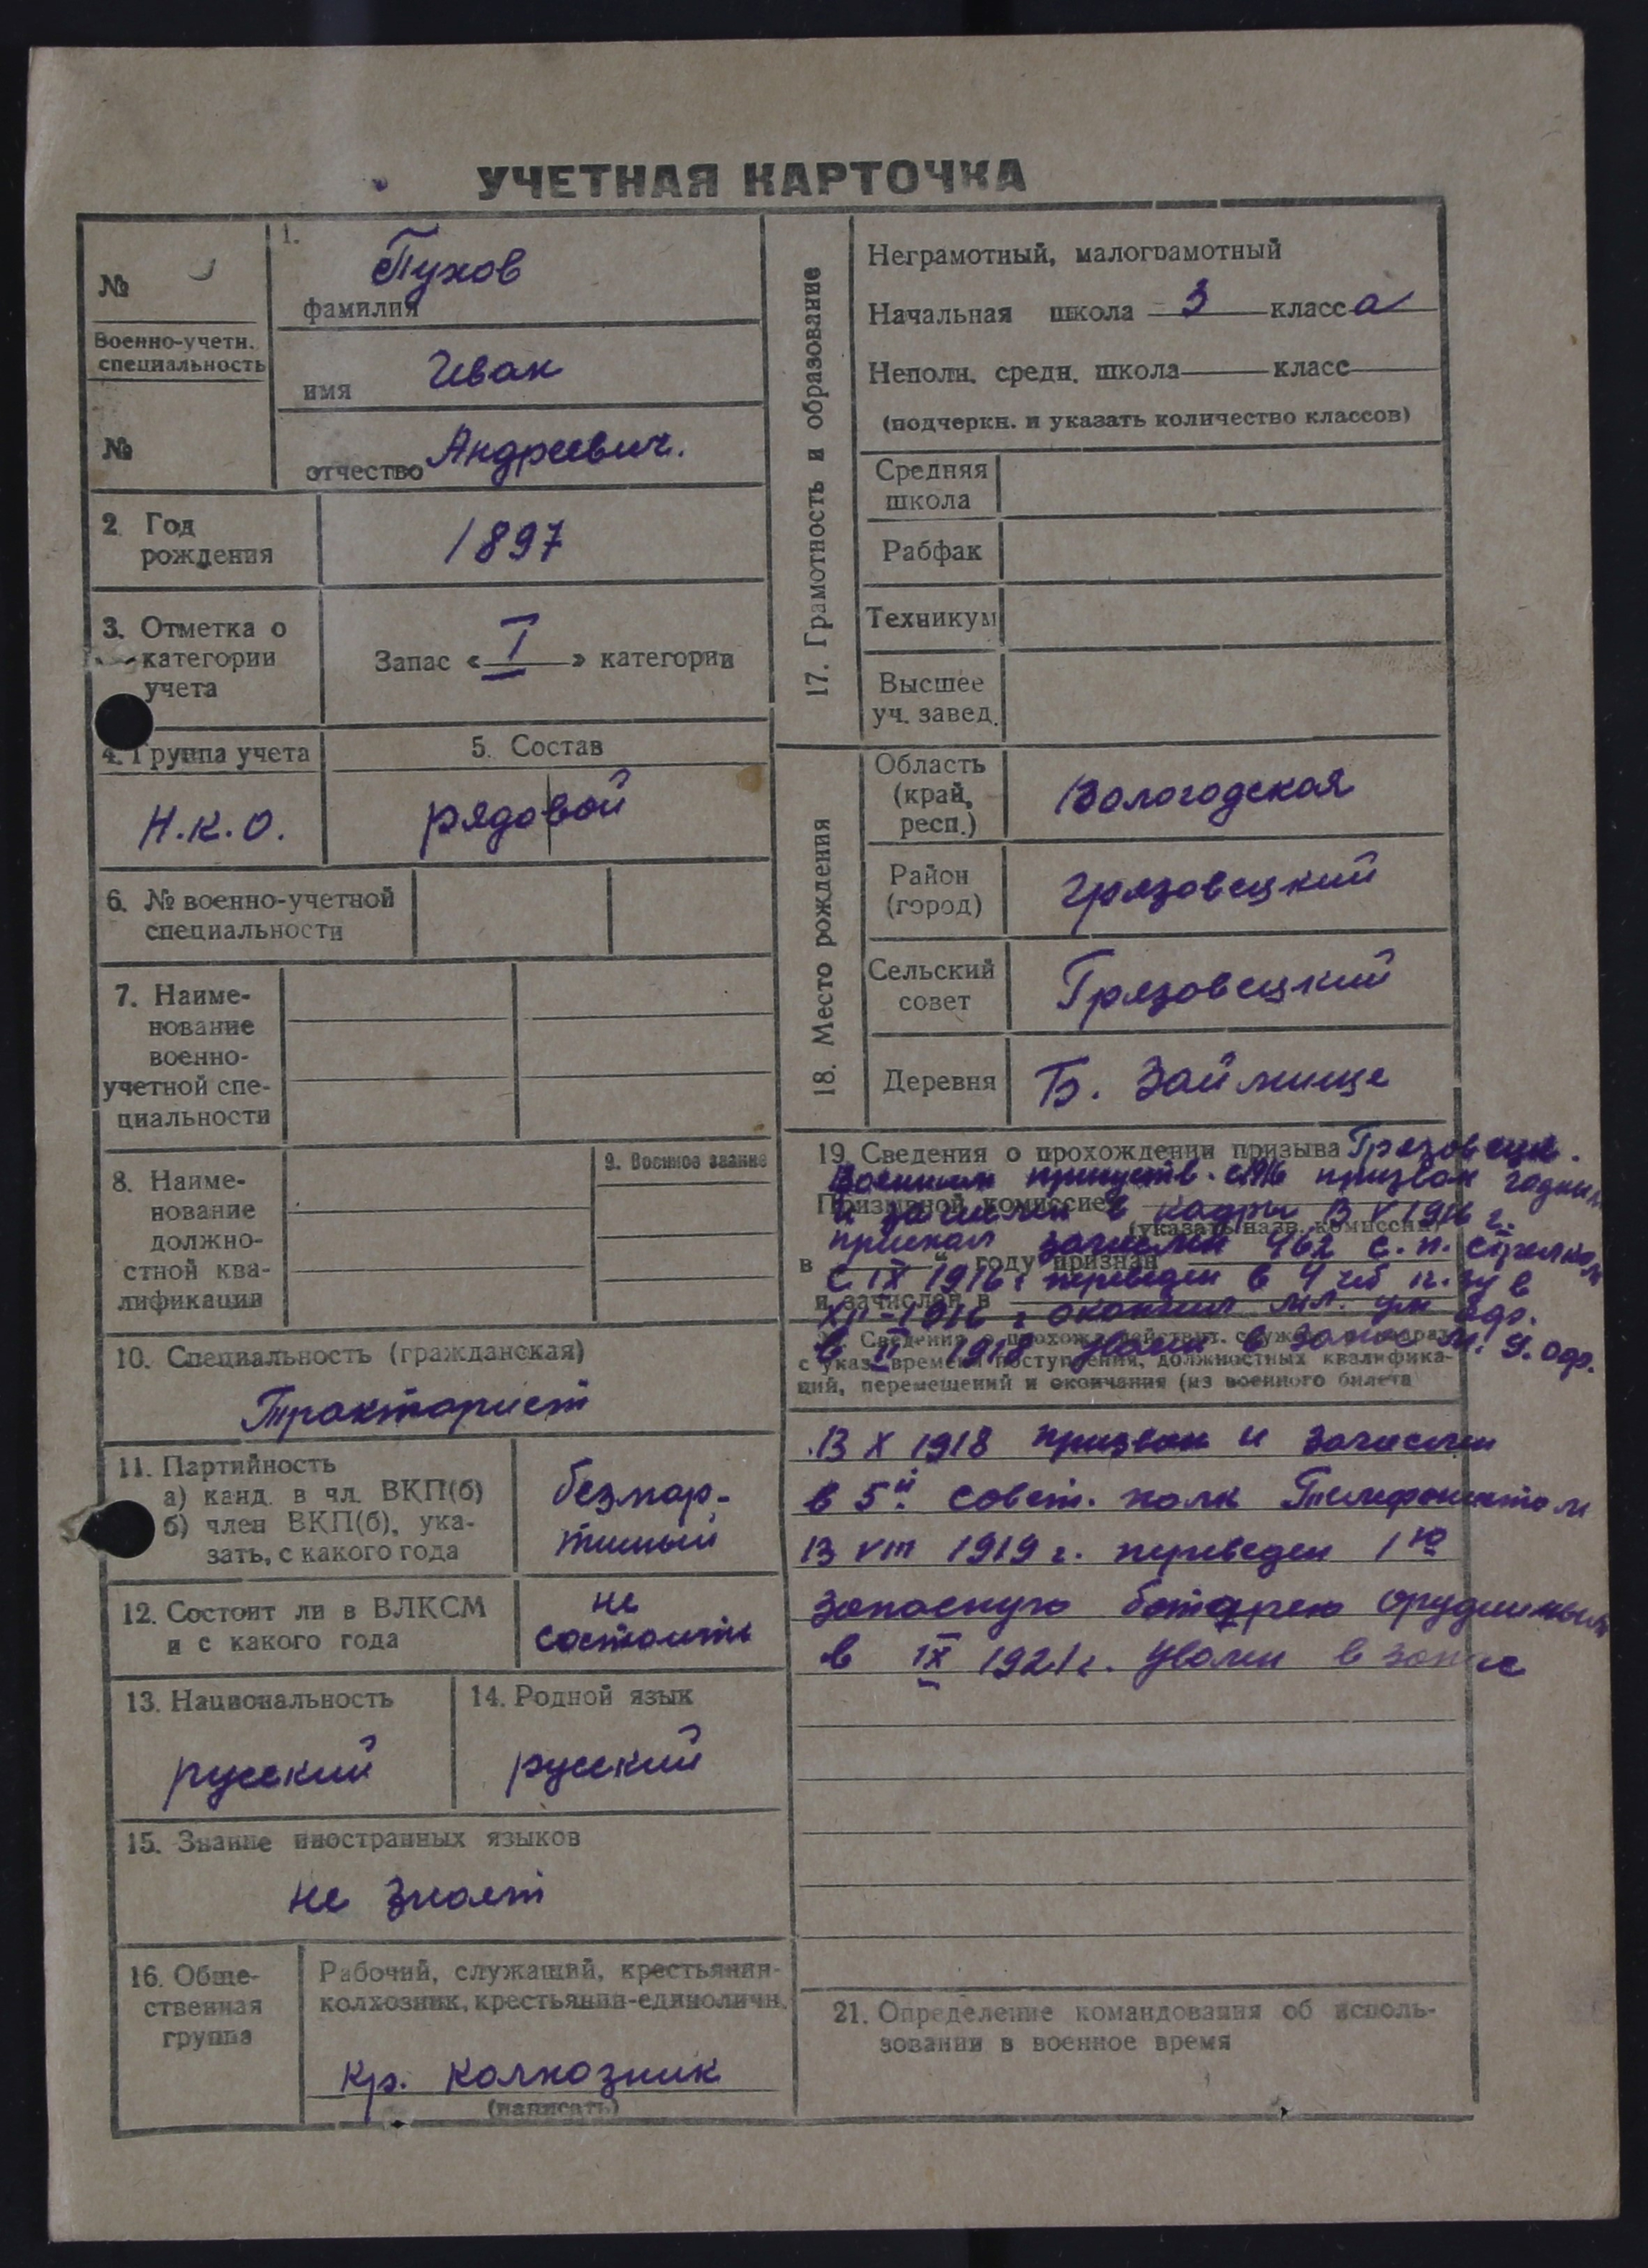 УЧЕТНАЯ КАРТОЧКА
№
Военно-учетн.
специальность
№
1.
Пухов
фамилия
Иван
имя
отчество Андреевич.
2 Год
рождения
1897
3. Отметка о
категории
учета
Запас « I » категории
4. Группа учета
Н.К.О.
5. Состав
рядовой
6. № военно-учетной
специальности
7. Наиме-
нование
военно-
учетной спе-
циальности
8. Наиме-
нование
должно-
стной ква-
лификации
9. Военное звание
10. Специальность (гражданская)
Тракторист
11. Партийность
а) канд. в чл. ВКП(б)
б) член ВКП(б), ука-
зать, с какого года
безпар-
тийный
12. Состоит ли в ВЛКСМ
и с какого года
не
состоить
13. Национальность
русский
14. Родной язык
русский
15. Знание иностранных языков
не знает
16. Обще-
ственная
группа
Рабочий, служащий, крестьянин-
колхозник, крестьянин-единоличн.
Кр. колхозник
(написать)
17. Грамотность и образование
Неграмотный, малограмотный
Начальная школа 3 класса
Неполн. средн. школа класс
(подчеркн. и указать количество классов)
Средняя
школа
Рабфак
Техникум
Высшее
уч. завед.
18. Место рождения
Область
(край,
респ.)
Вологодская
Район
(город)
Грязовецкий
Сельский
совет
Грязовецкий
Деревня
Б. Займище
19. Сведения о прохождении призыва Грязовецк.
Воинским присутств. с 1916 призван годным
Призывной комиссией
и зачислен в кадры В V 1916 г.
(указать назв. комиссии)
зачислен 462 с. п. стрелком
в году признан
С IX 1916 г переведен в 4
и зачислен в
XII-1916 г окончил
Сведения о прохожд. действит. службы
в II 1918 уволен в запас
с указ. времени поступления, должностных квалифика-
ций, перемещений и окончания (из военного билета
В X 1918 призван и зачислен
в 5й совет. полк Телефонистом
В VIII 1919 г. переведен 1ю
запасную батарею орудийным
в IX 1921 г. уволен в запас
21. Определение командования об исполь-
зовании в военное время